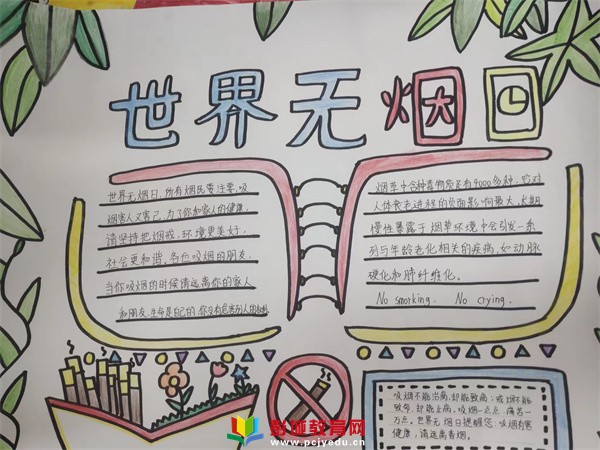 世界无烟日
世界无烟日,所有烟民要注意,吸
烟害人又害己,为了你和家人的健康,
请坚持把烟戒,环境更美好,
社会更和谐,各位吸烟的朋友,
当你吸烟的时候请远离你的家人
和朋友,生命是自己的,你没有危害别人的
烟草中含种毒物质足有4000多种,它对
人体衰老进程的负面影响最大,长期
慢性暴露于烟草环境中会引发一系
列与年龄老化相关的疾病,如动脉
硬化和肺纤维化。
No smorking. No crying.
吸烟不能治病,却能致病;戒烟不能
致穷,却能止病。吸烟一点点 痛苦一
万点。世界无烟日提醒您:吸烟有害
健康,请远离香烟。
教育网
www.pcjyedu.cn